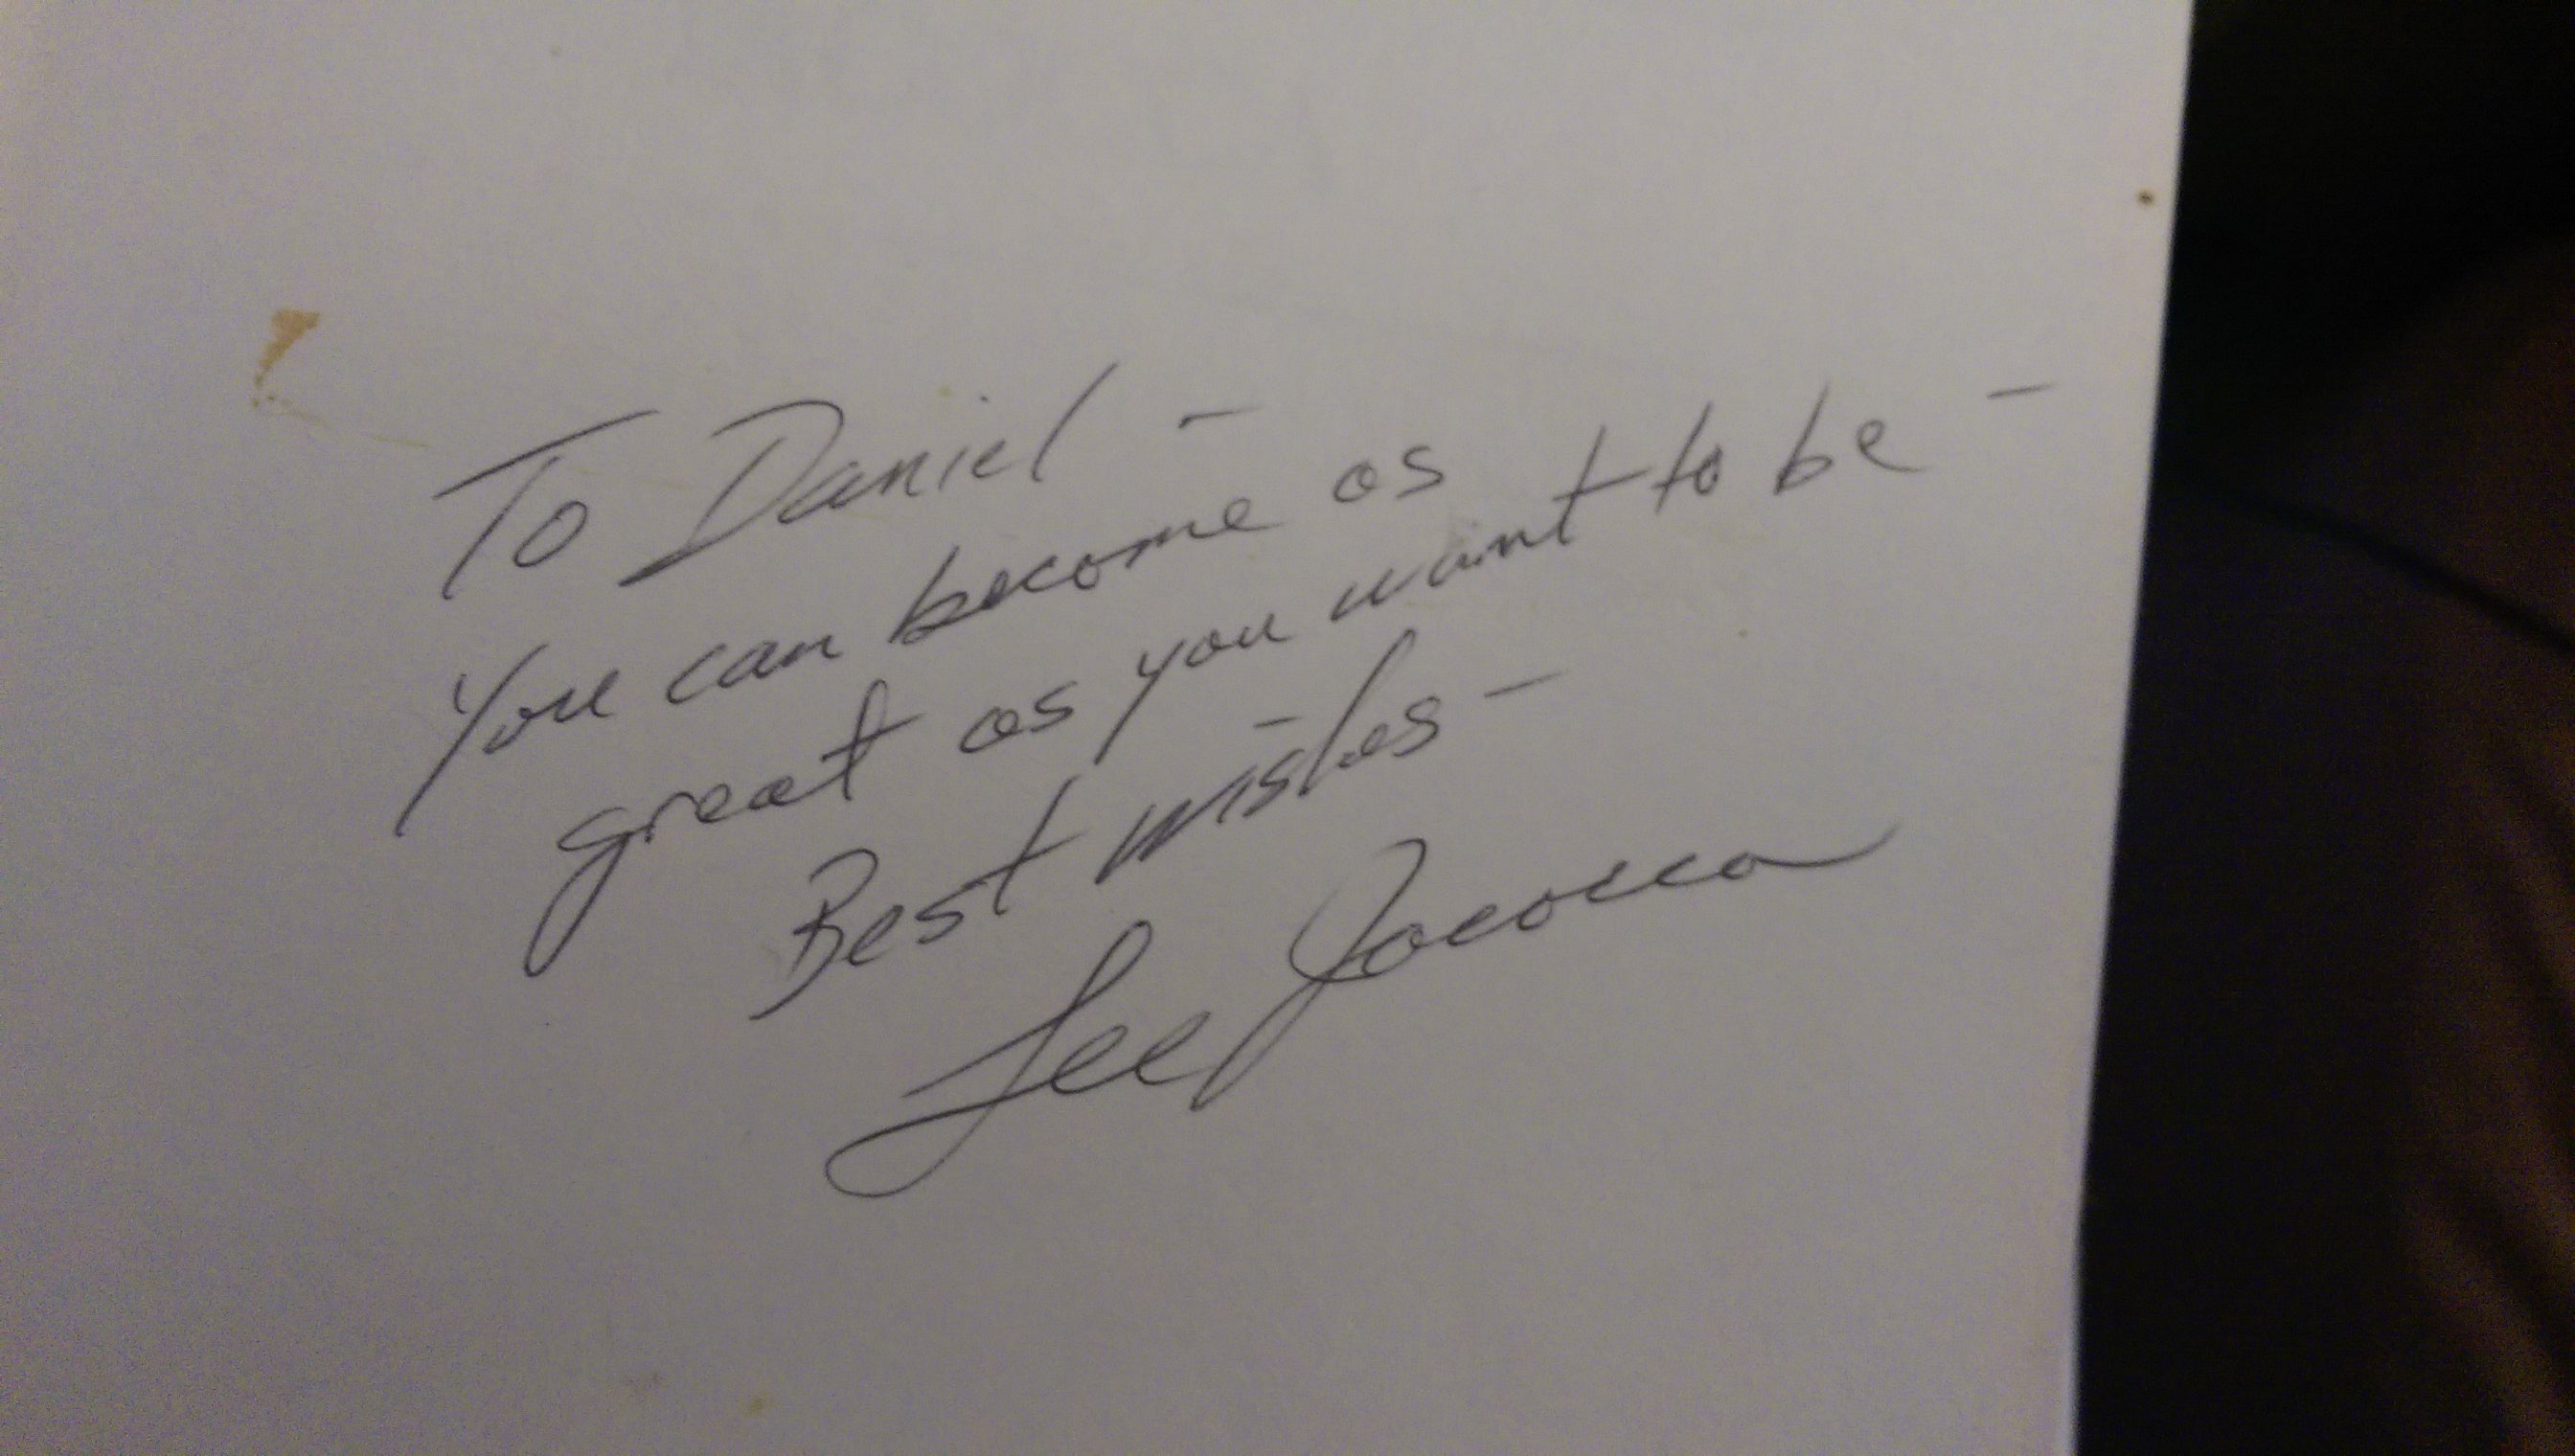 To Daniel –
You can become as
great as you want to be –
Best wishes –
Lee Iacocca